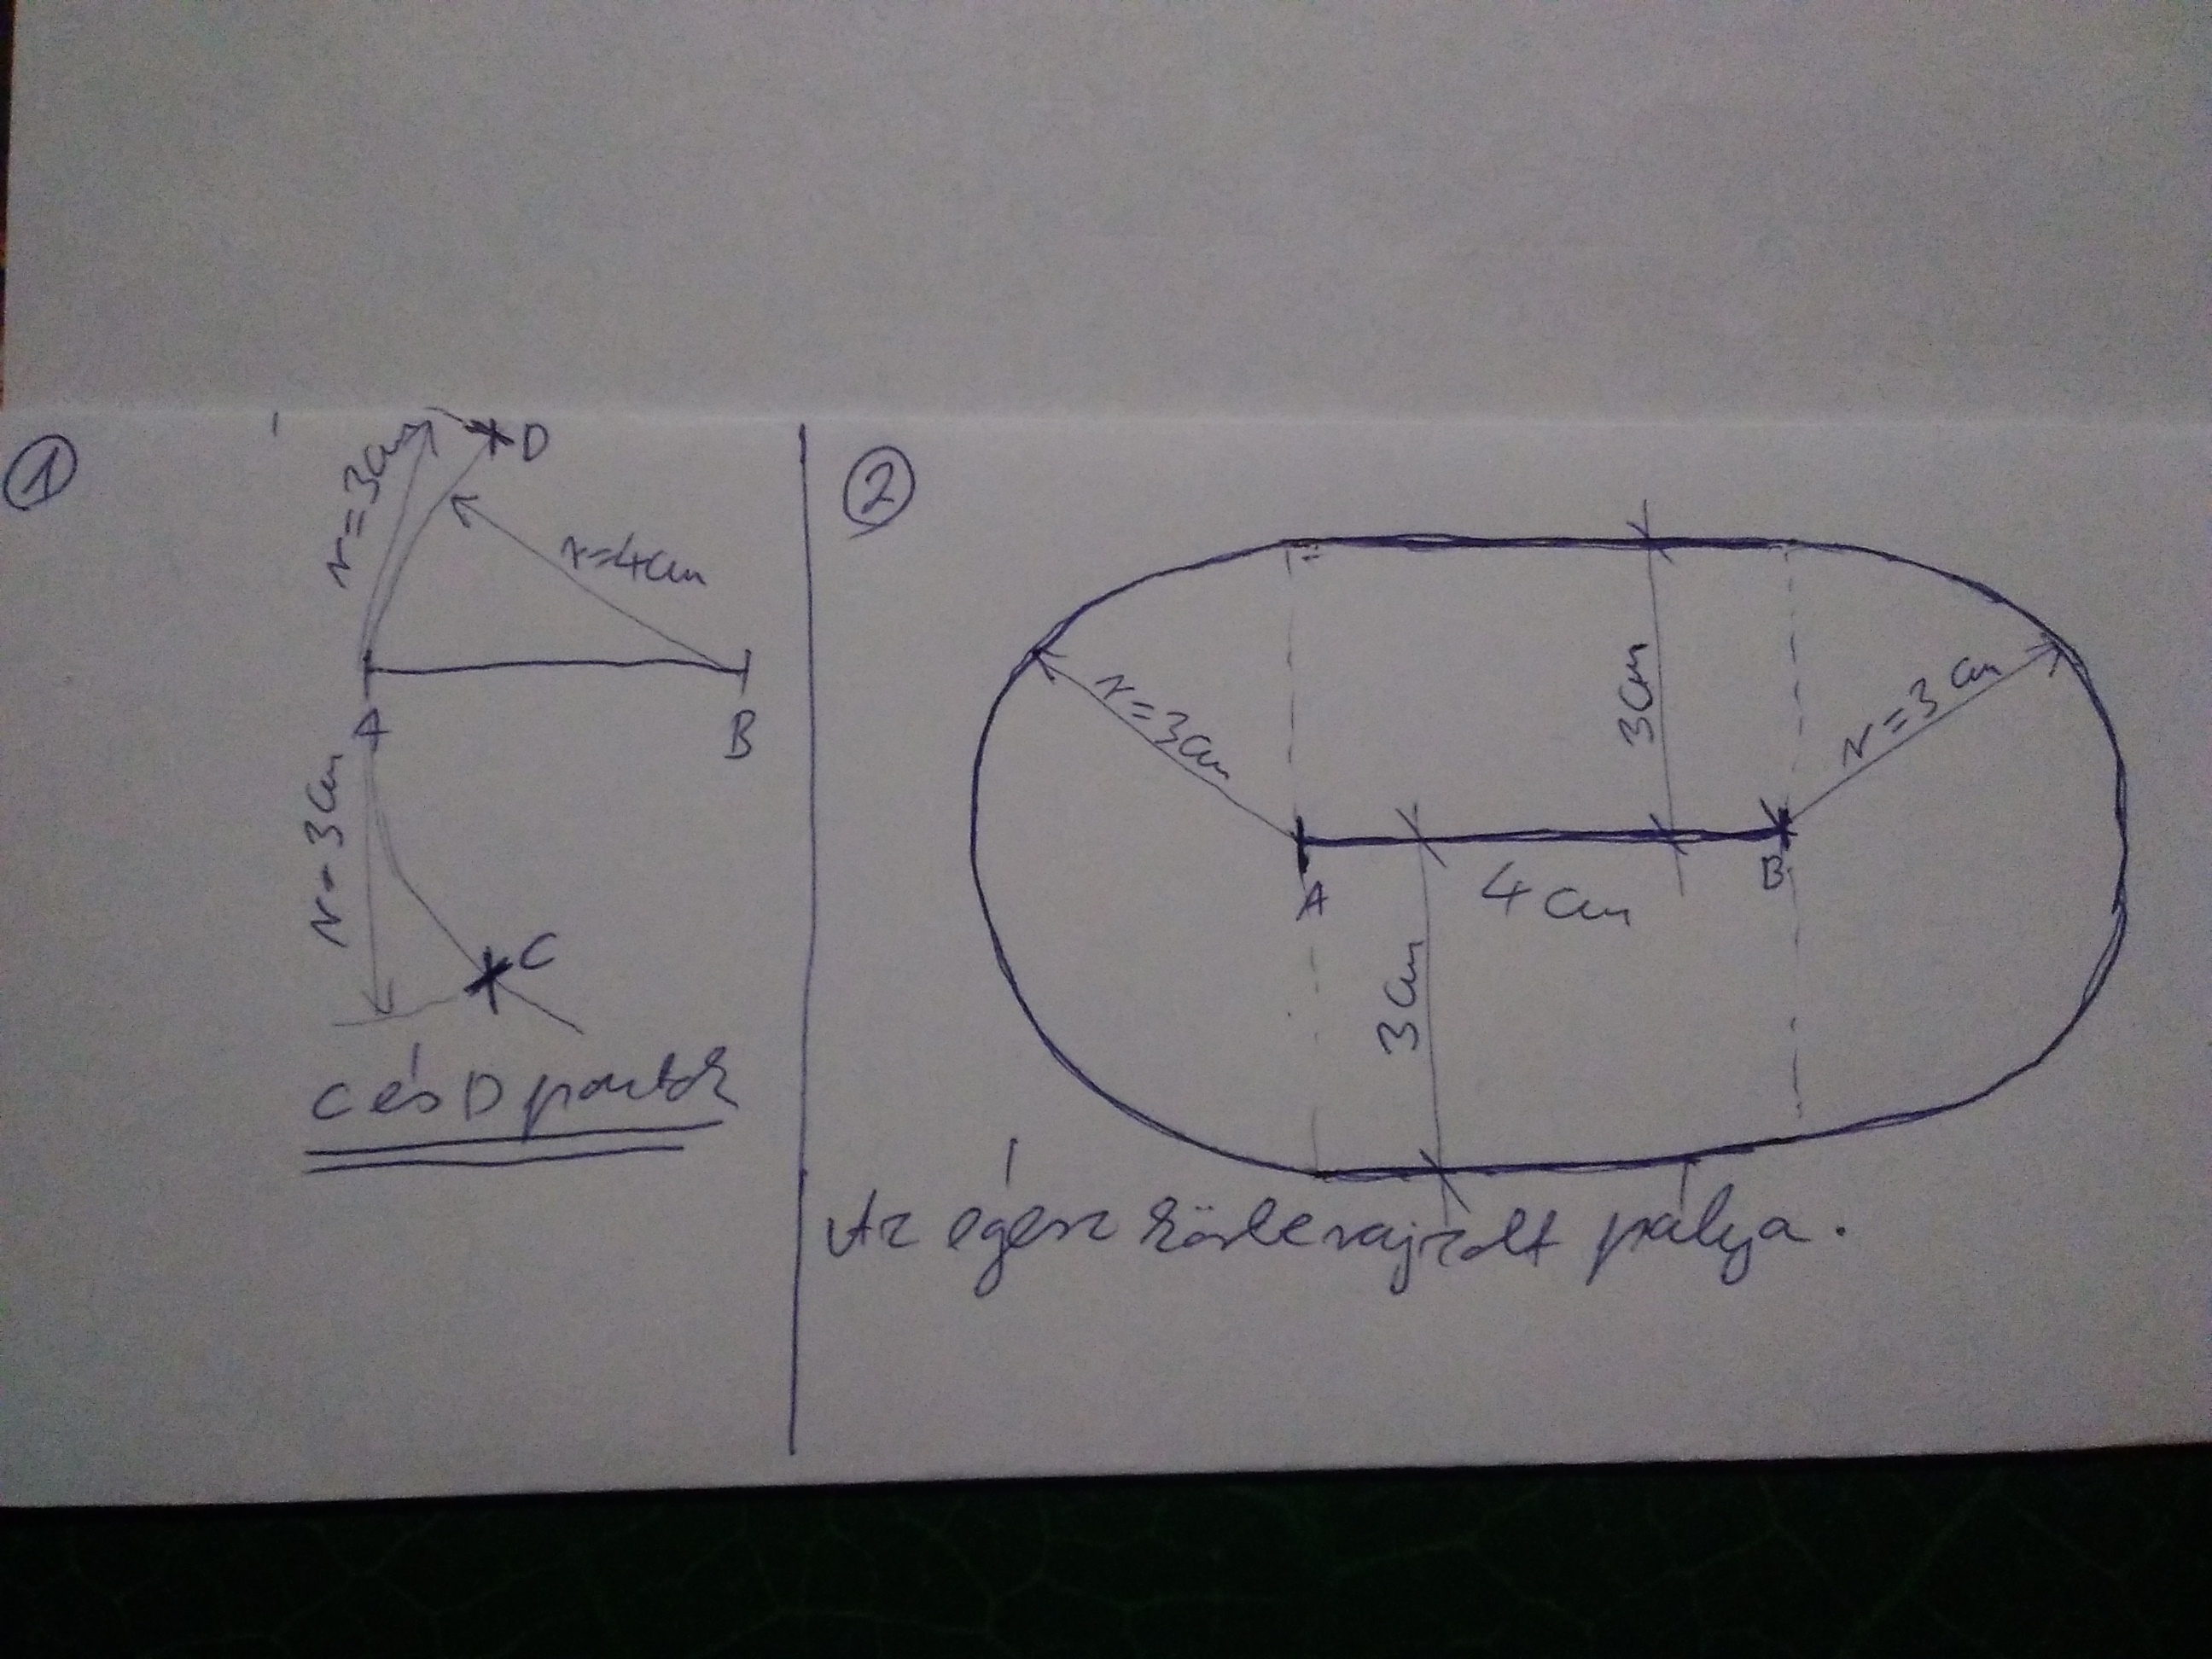 1
D
r=3cm
r=4cm
A
B
r=3cm
C
C és D pontok
2
r=3cm
3cm
r=3cm
A
B
4cm
3cm
Az egész körberajzolt pálya.